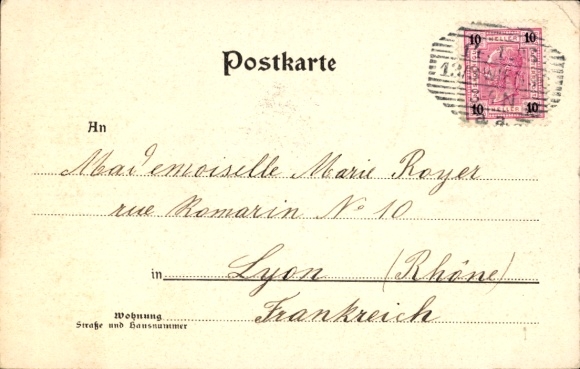 Postkarte
10 HELLER 10
10 HELLER 10
12
An
Mademoiselle Marie Royer
rue Romarin No 10
in Lyon (Rhône)
Wohnung
Straße und Hausnummer
Frankreich